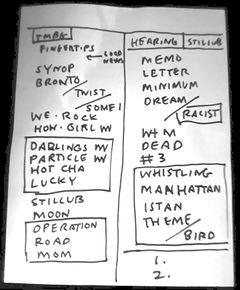 TMBG
FINGERTIPS
GOOD NEWS
SYNOP
BRONTO
TWIST
SOME!
WE · ROCK
HOW · GIRL W
DARLINGS W
PARTICLE W
HOT CHA
LUCKY
STILLUB
MOON
OPERATION
ROAD
MOM
HEARING STILLUB
MEMO
LETTER
MINIMUM
DREAM
RACIST
W+M
DEAD
#3
WHISTLING
MANHATTAN
ISTAN
THEME
BIRD
1.
2.